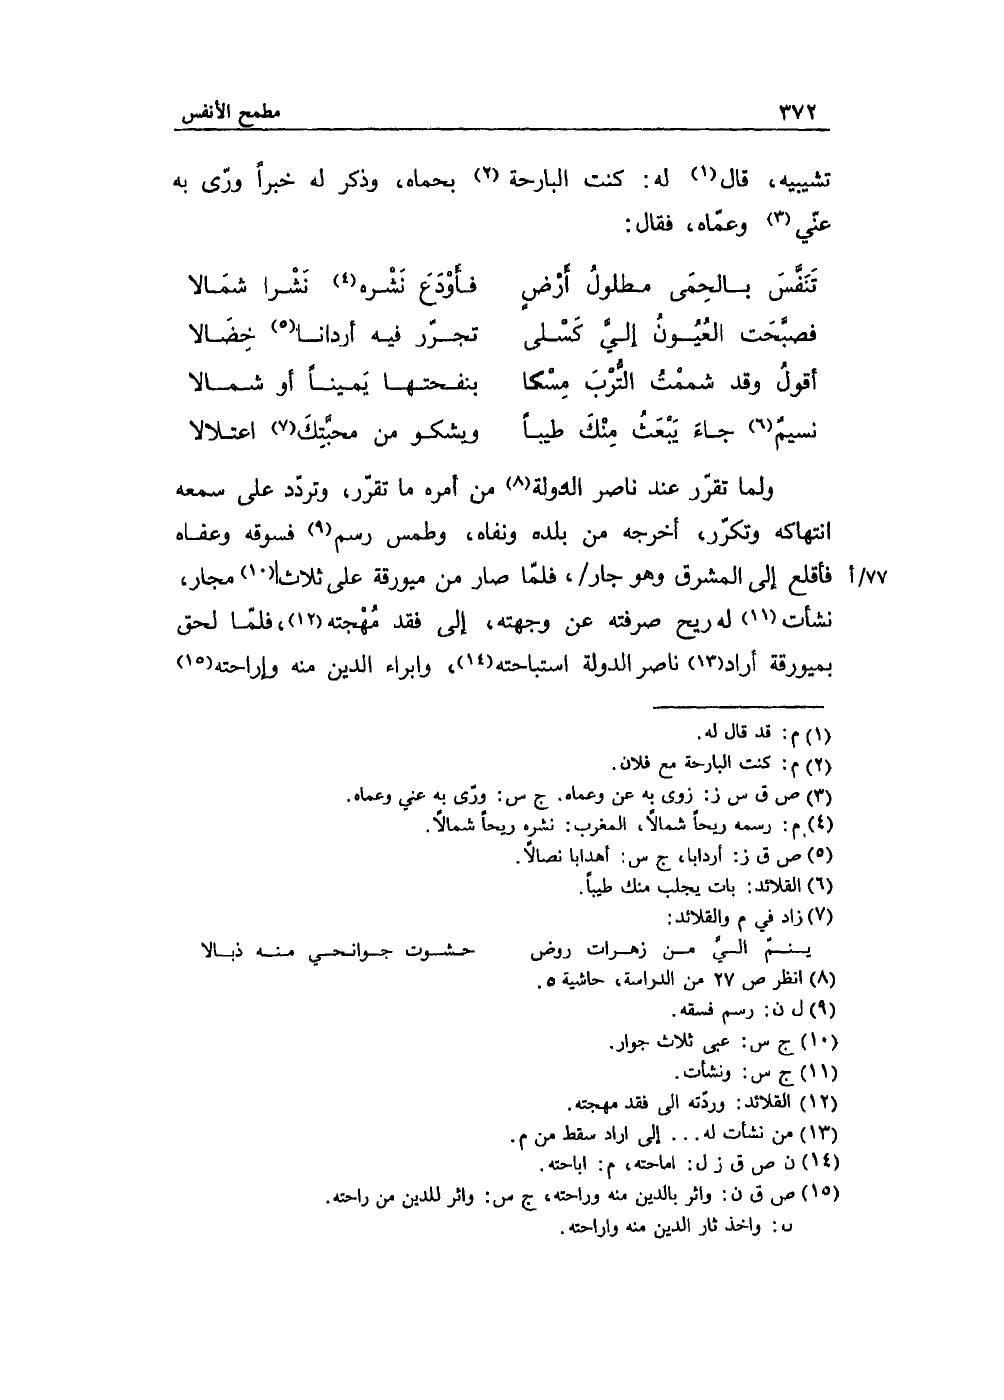 ٣٧٢ مطمح الأنفس
تشبيبه، قال(١) له: كنت البارحة (٢) بحماه، وذكر له خبراً ورّى به
عنّي (٣) وعمّاه، فقال:
تَنَفَّسَ بالحِمَى مطلولُ أَرْضٍ فأَوْدَعَ نَشْره(٤) نَشْرا شمَالا
فصبَّحَت العُيُونُ إليَّ كَسْلى تجرّر فيه أردانا(٥) خِضَالا
أقولُ وقد شممْتُ التُّرْبَ مِسْكا بنفحتها يَميناً أو شمالا
نسيمٌ(٦) جاءَ يَبْعَثُ مِنْكَ طيباً ويشكو من محبَّتِكَ(٧) اعتلالا
ولما تقرّر عند ناصر الدولة(٨) من أمره ما تقرّر، وتردّد على سمعه
انتهاكه وتكرّر، أخرجه من بلده ونفاه، وطمس رسم(٩) فسوقه وعفاه
٧٧/أ فأقلع إلى المشرق وهو جار/، فلمّا صار من ميورقة على ثلاثا(١٠) مجار،
نشأت (١١) له ريح صرفته عن وجهته، إلى فقد مُهْجته (١٢)، فلمّا لحق
بميورقة أراد(١٣) ناصر الدولة استباحته(١٤)، وابراء الدين منه وإراحته(١٥)
(١) م: قد قال له.
(٢) م: كنت البارحة مع فلان.
(٣) ص ق س ز: زوى به عن وعماه. ج س: ورّى به عني وعماه.
(٤) م: رسمه ريحاً شمالاً، المغرب: نشره ريحاً شمالاً.
(٥) ص ق ز: أردابا، ج س: أهدابا نصالاً.
(٦) القلائد: بات يجلب منك طيباً.
(٧) زاد في م والقلائد:
ينمّ اليَّ من زهرات روض حشوت جوانحي منه ذبالا
(٨) انظر ص ٢٧ من الدراسة، حاشية ٥.
(٩) ل ن: رسم فسقه.
(١٠) ج س: عبى ثلاث جوار.
(١١) ج س: ونشأت.
(١٢) القلائد: وردّته الى فقد مهجته.
(١٣) من نشأت له... إلى اراد سقط من م.
(١٤) ن ص ق ز ل: اماحته، م: اباحته.
(١٥) ص ق ن: واثر بالدين منه وراحته، ج س: واثر للدين من راحته.
ب: واخذ ثار الدين منه واراحته.